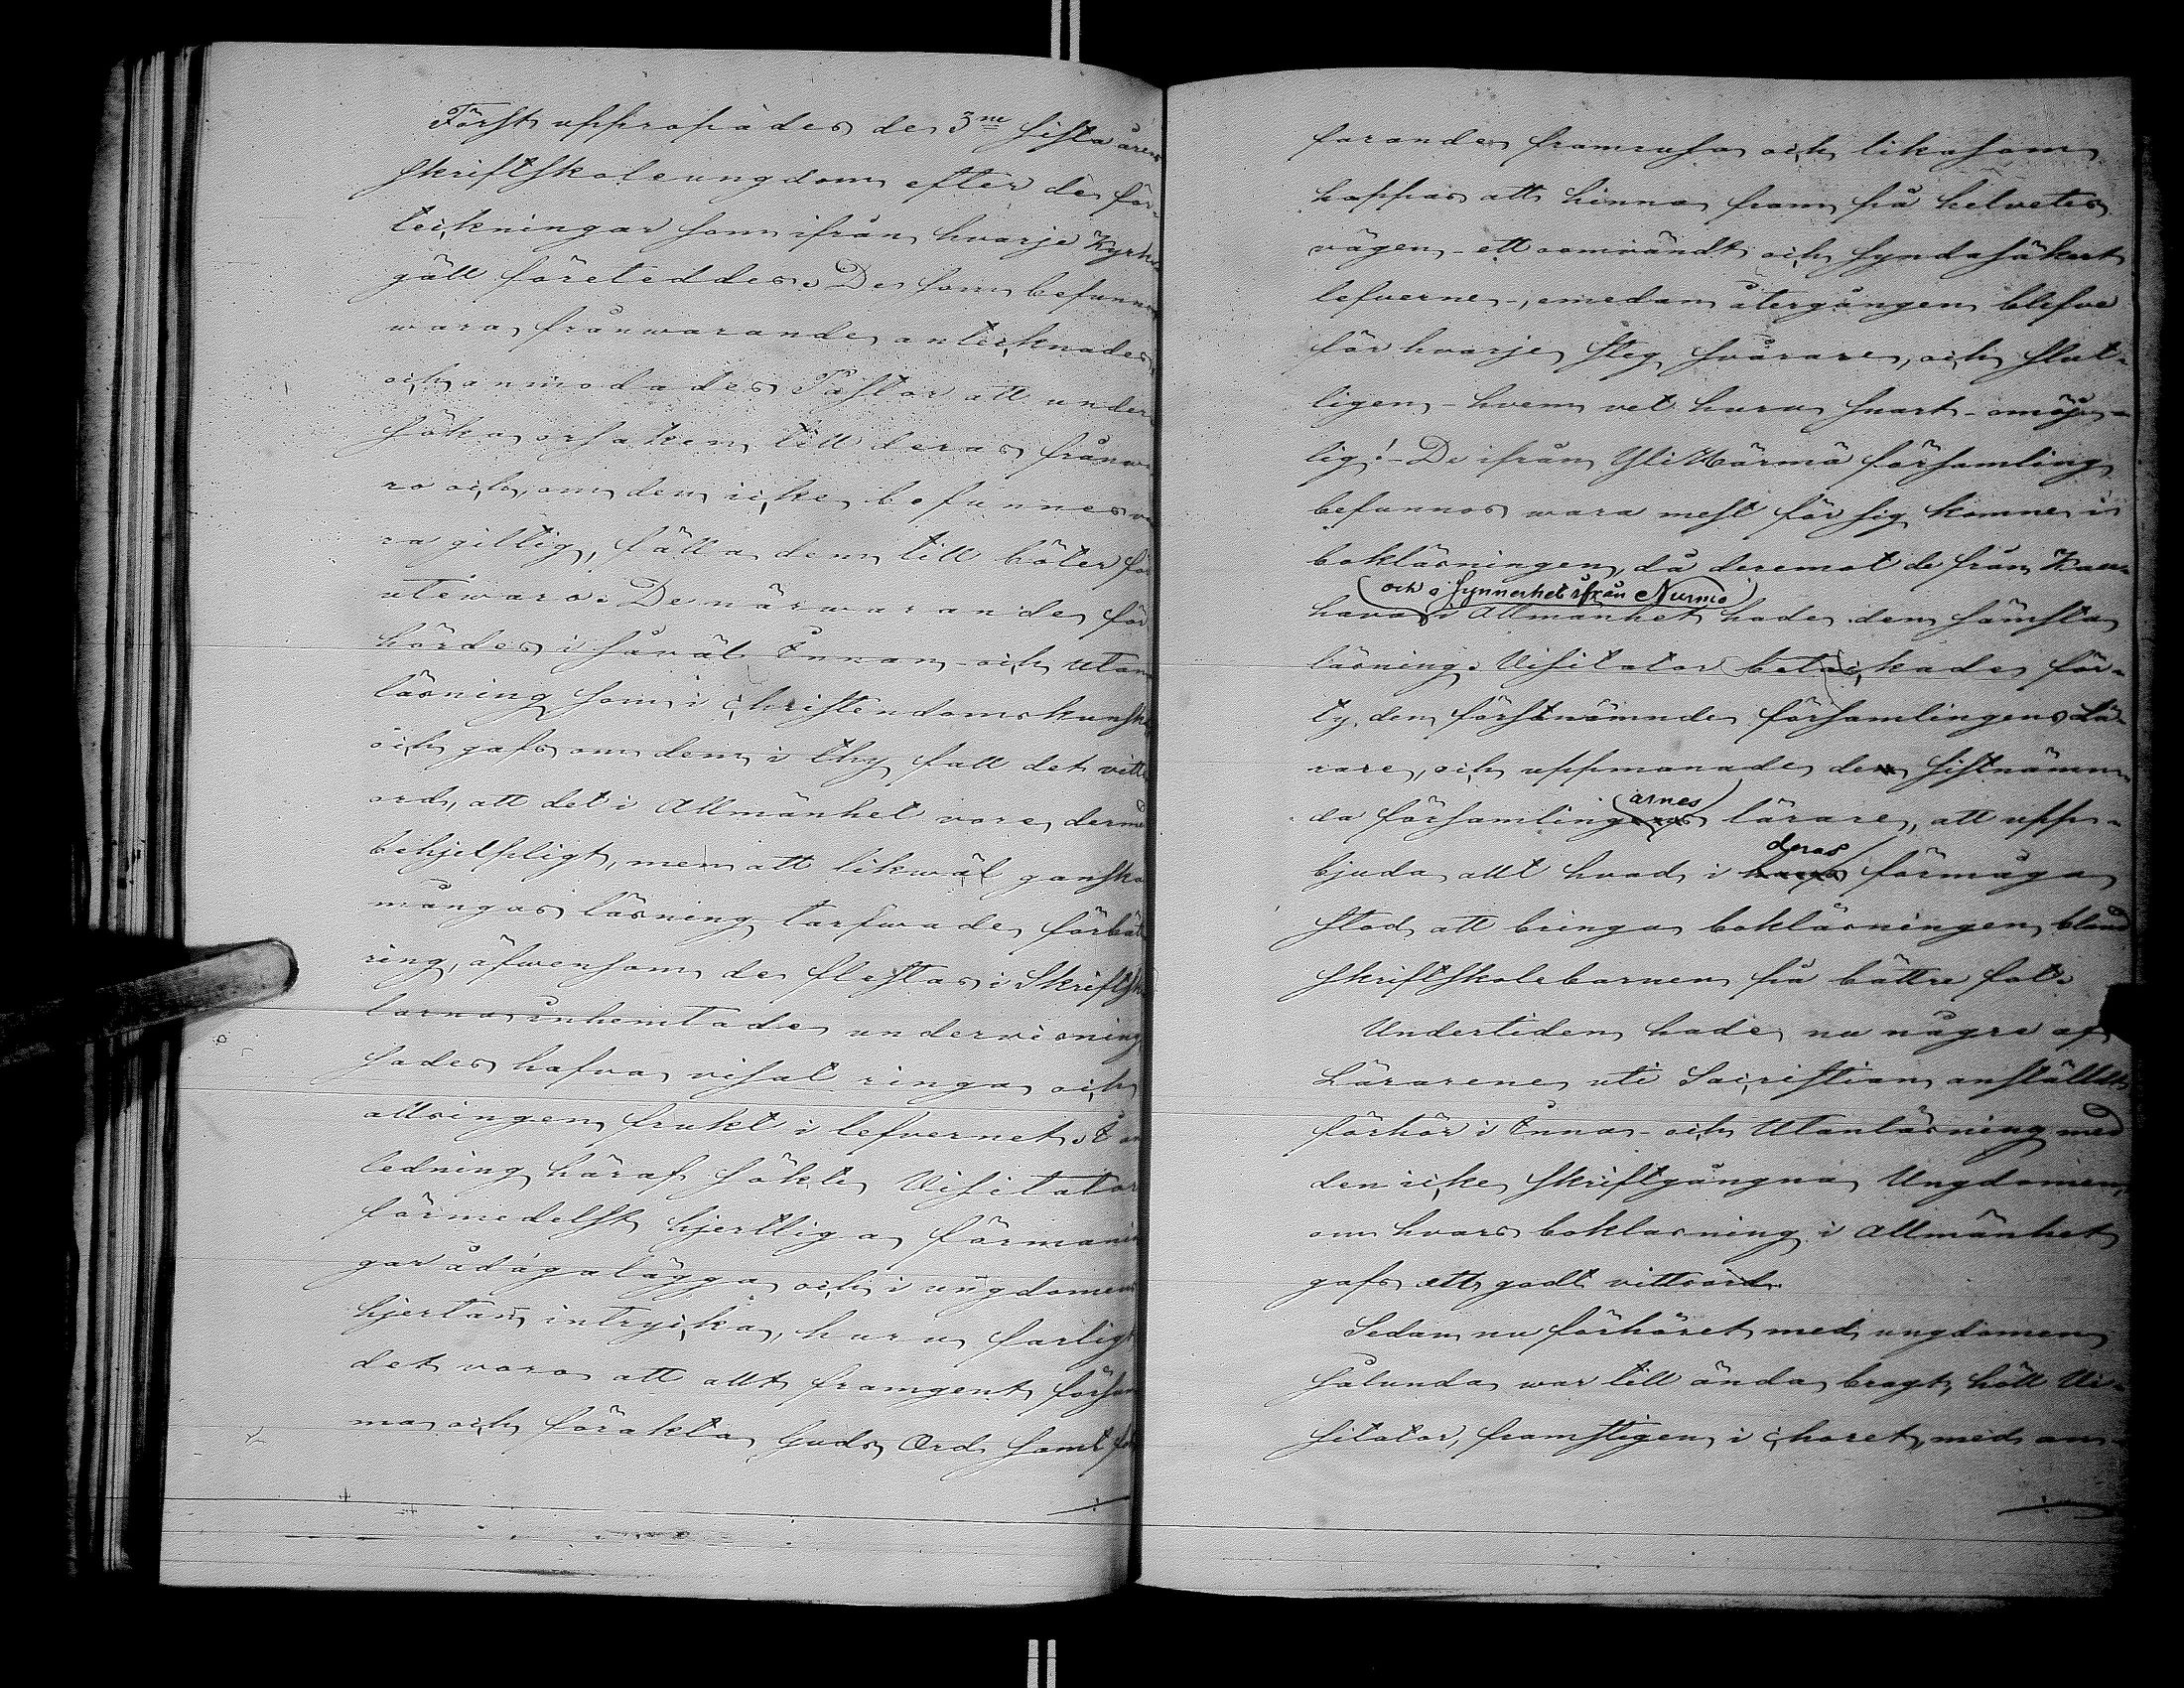 Först uppropades de 3ne sista årens
Skriftskoleungdom efter de för-
teckningar som ifrån hvarje Kyrko
gäll företeddes. De som befunnos
wara frånwarande antecknades,
och anmodades Pastor att under-
söka orsaken till deras frånwa
ro och, om den icke befunnes va
ra giltig, fälla dem till böter för
utewaro. De närwarande för
hördes i såväl Innan- och utan
läsning som i christendomskunskap
och gafs om dem i thy fall det vitts
ord, att det i Allmänhet vore dermed
behjelpligt, men att likwäl ganska
mångas läsning tarfwade förbätt
ring, äfwensom de flestas i Skriftsko
lorna inhemtade undervisning
sades hafva visat ringa och
allsingen frukt i lefvernet. I an
ledning häraf sökte Visitator
förmedelst hjertliga förmanin
gar ådagalägga och i ungdomens
hjertan intrycka, huru farligt
det vore att allt framgent försum
ma och förakta Guds Ord samt fort
farande framrusa och likasom
hoppas att hinna fram på helvetes
vägen - ett oomvändt och syndasäkert
lefverne -, emedan återgången blefve
för hvarje steg svårare, och slut-
ligen - hvem vet huru snart - omöj-
lig! - De ifrån Yli Härmä församling
befunnos wara mest för sig komne i
bokläsningen, då deremot de från Kau-
(och i synnerhet ifrån Nurmo)
hava i Allmänhet hade den sämsta
läsning. Visitator betackade för-
ty den förstnämnde församlingens Lä-
rare, och uppmanade de sistnämn-
da församlingarnes lärare, att upp-
bjuda allt hvad i deras förmåga
stod att bringa bokläsningen bland
skriftskolebarnen på bättre fot.
Undertiden hade nu några af
Lärarene uti Sacristian anställt
förhör i Innan- och Utanläsning med
den icke skriftgångna Ungdomen,
om hvars bokläsning i Allmänhet
gafs ett godt vittsord.
Sedan nu förhöret med ungdomen
sålunda war till ända bragt, höll Vi-
sitator, framstigen i choret, med an-